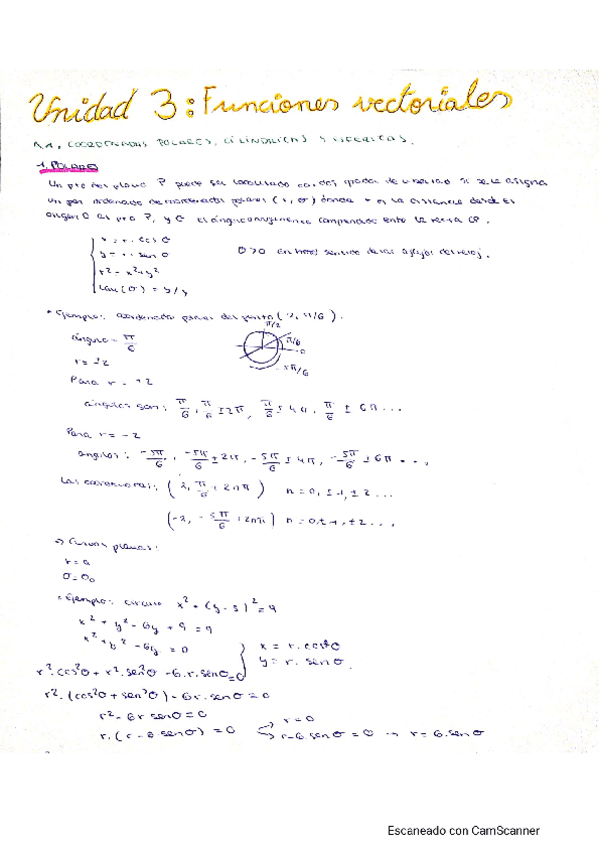 Unidad 3: Funciones vectoriales
1.1. COORDENADAS POLARES, CILINDRICAS Y ESFERICAS.
1. POLARES
Un pto del plano P puede ser localizado si se le asigna
un par ordenado de coordenadas polares (r, σ) dónde r es la distancia desde el
origen O al pto P, y σ el ángulo comprendido entre la recta OP.
x = r. cos σ
y = r. sen σ
r² = x²+y²
tan(σ) = y/x
σ>0 sentido de las agujas del reloj.
• Ejemplo: coordenadas polares del punto (2, π/6).
ángulo = π/6
r = ±2
π/2
π/6
0
-5π/6
Para r = +2
ángulos son: π/6, π/6 ± 2π, π/6 ± 4π, π/6 ± 6π...
Para r = -2
ángulos: -5π/6, -5π/6 ± 2π, -5π/6 ± 4π, -5π/6 ± 6π...
Las coordenadas: (2, π/6 + 2nπ) n = 0, ±1, ±2...
(-2, -5π/6 + 2nπ) n = 0, ±1, ±2...
⇒ Curvas planas:
r = a
σ = σ₀
• Ejemplo: circulo x² + (y-3)² = 9
x² + y² - 6y + 9 = 9
x² + y² - 6y = 0
x = r. cos σ
y = r. sen σ.
r². cos²σ + r². sen²σ - 6.r. senσ = 0
r². (cos²σ + sen²σ) - 6r. senσ = 0
r² - 6r senσ = 0
r. (r - 6 senσ) = 0
r = 0
r - 6 senσ = 0 → r = 6. senσ
Escaneado con CamScanner